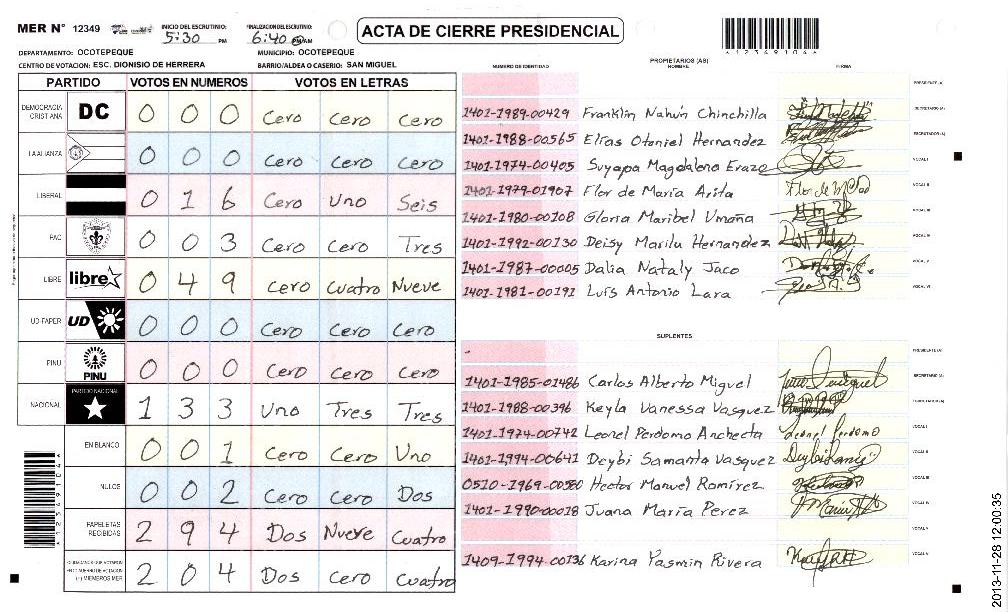 MER N° 12349
INICIO DEL ESCRUTINIO: 5:30 PM
FINALIZACION DEL ESCRUTINIO: 6:40 PM/AM
ACTA DE CIERRE PRESIDENCIAL
*12349104*
DEPARTAMENTO: OCOTEPEQUE
MUNICIPIO: OCOTEPEQUE
CENTRO DE VOTACION: ESC. DIONISIO DE HERRERA
BARRIO/ALDEA O CASERIO: SAN MIGUEL
PARTIDO VOTOS EN NUMEROS VOTOS EN LETRAS
DEMOCRACIA CRISTIANA DC 0 0 0 Cero Cero Cero
LA ALIANZA 0 0 0 Cero Cero Cero
LIBERAL 0 1 6 Cero Uno Seis
PAC 0 0 3 Cero Cero Tres
LIBRE libre 0 4 9 Cero Cuatro Nueve
UD-FAPER UD 0 0 0 Cero Cero Cero
PINU PINU 0 0 0 Cero Cero Cero
NACIONAL PARTIDO NACIONAL 1 3 3 Uno Tres Tres
EN BLANCO 0 0 1 Cero Cero Uno
NULOS 0 0 2 Cero Cero Dos
PAPELETAS RECIBIDAS 2 9 4 Dos Nueve Cuatro
CIUDADANOS QUE VOTARON
(+) MIEMBROS MER 2 0 4 Dos Cero Cuatro
PROPIETARIOS (AS)
NUMERO DE IDENTIDAD NOMBRE FIRMA
PRESIDENTE (A)
1401-1989-00429 Franklin Nahún Chinchilla SECRETARIO (A)
1401-1988-00565 Elías Otoniel Hernandez ESCRUTADOR (A)
1401-1974-00405 Suyapa Magdalena Erazo VOCAL I
1401-1979-01907 Flor de María Arita VOCAL II
1401-1980-00108 Gloria Maribel Umaña VOCAL III
1401-1992-00130 Deisy Marilu Hernandez VOCAL IV
1401-1987-00005 Dalia Nataly Jaco VOCAL V
1401-1981-00191 Luís Antonio Lara VOCAL VI
SUPLENTES
PRESIDENTE (A)
1401-1985-01486 Carlos Alberto Miguel SECRETARIO (A)
1401-1988-00396 Keyla Vanessa Vasquez
1401-1974-00742 Leonel Perdomo Ancheeta Leonel Perdomo VOCAL I
1401-1994-00641 Deybi Samanta Vasquez VOCAL II
0510-1969-00580 Hector Manuel Ramírez VOCAL III
1401-1990-00018 Juana María Perez VOCAL IV
VOCAL V
1409-1994-00136 Karina Yasmin Rivera
2013-11-28 12:00:35